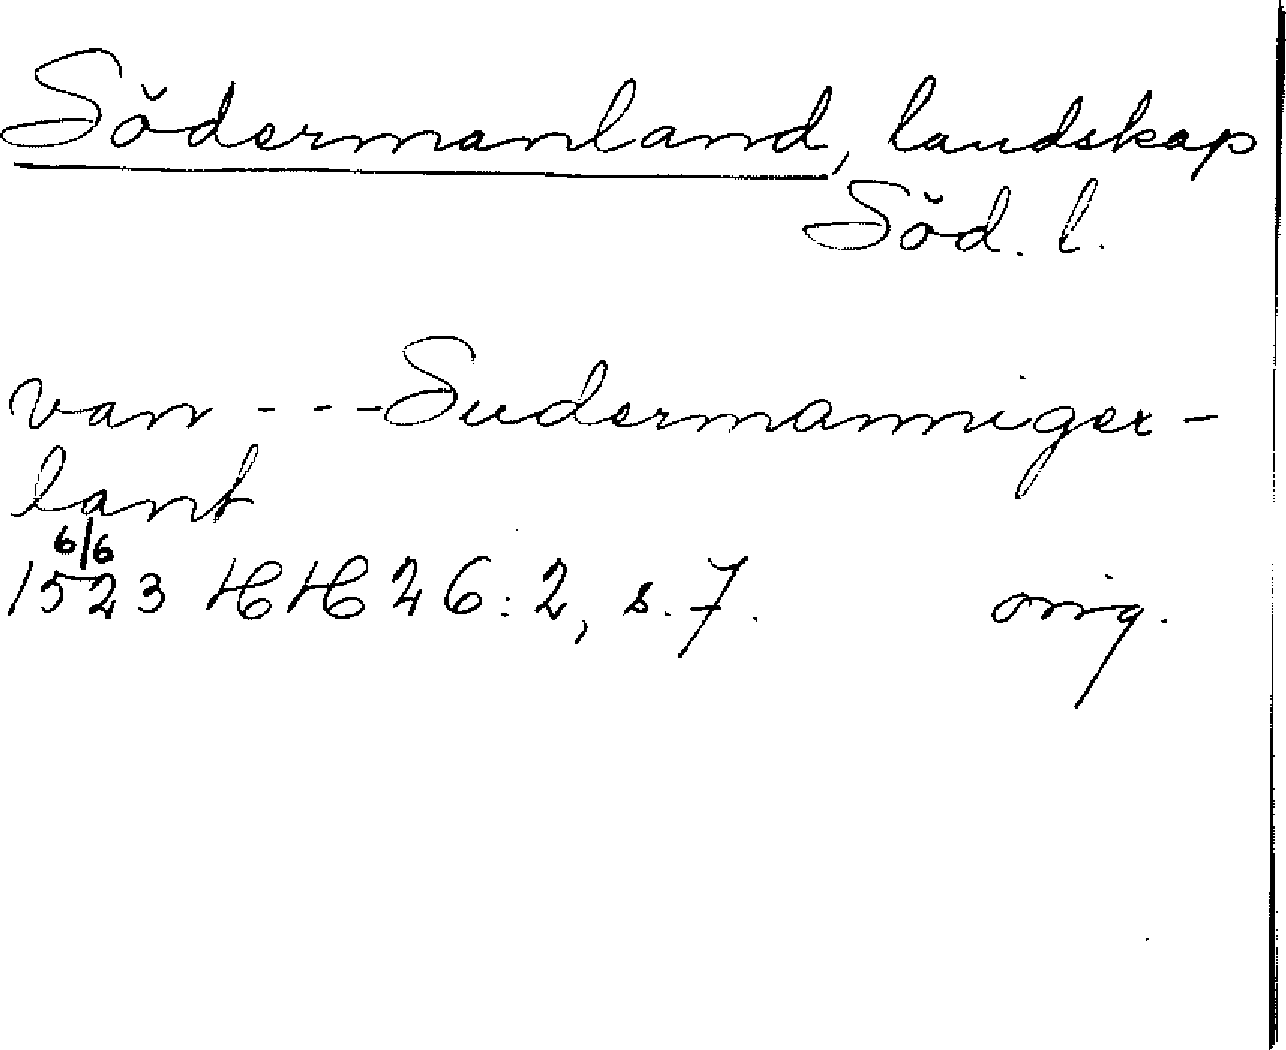 Södermanland, landskap
Söd. l.
van - - - Sudermanniger-
lant
6/6
1523 HH 26:2, s. 7. orig.